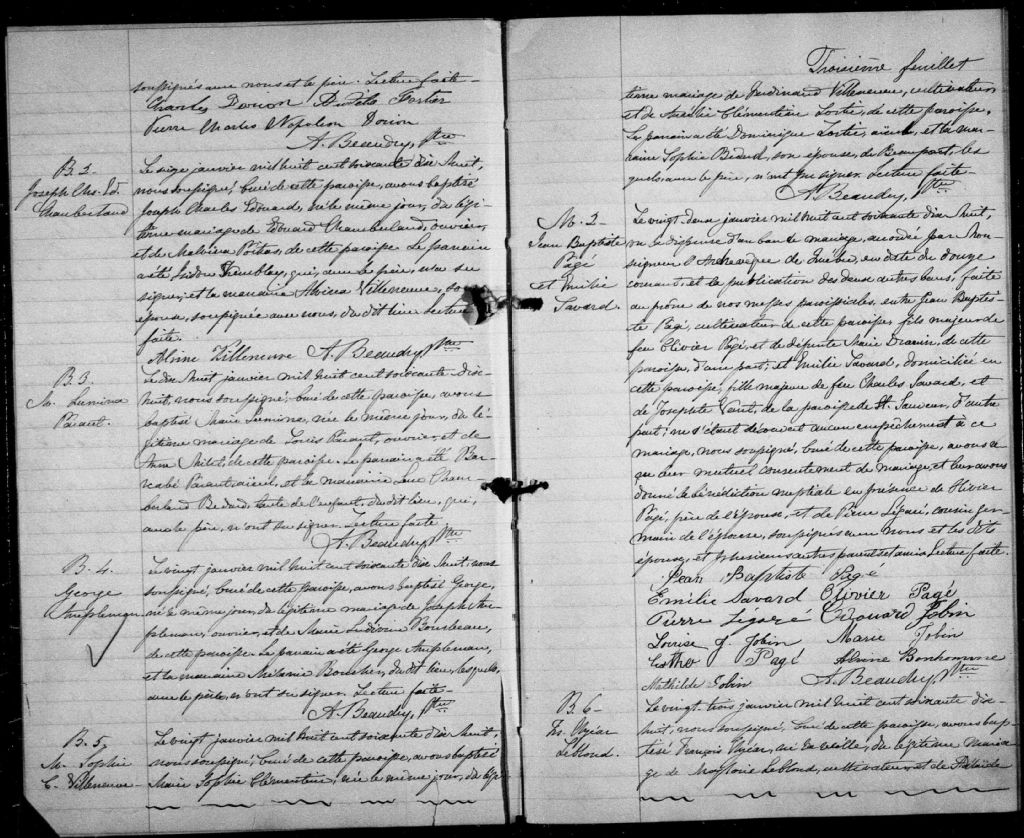 soussignés avec nous et le père. Lecture faite
Charles Dorion Fortier
Pierre Charles Napoléon Dorion
A. Beaudry, Ptre
B. 2.
Joseph Chs. Ed.
Chamberland
Le seize janvier mil huit cent soixante dix huit,
nous soussigné, curé de cette paroisse, avons baptisé
Joseph Charles Edouard, né le même jour, du légi-
time mariage de Edouard Chamberland, ouvrier,
et de Malvina Poitras, de cette paroisse. Le parrain
a été Tremblay, qui, avec le père, n'a su
signer, et la marraine Alvina Villeneuve, son
épouse, soussignée avec nous, du dit lieu. Lecture
faite.
Alvine Villeneuve A. Beaudry, Ptre
B. 3.
M. Lumina
Parant.
Le dix huit janvier mil huit cent soixante-dix-
huit, nous soussigné, curé de cette paroisse, avons
baptisé Marie Lumina, née le même jour, du lé-
gitime mariage de Louis Parant, ouvrier, et de
de cette paroisse. Le parrain a été Bar-
nabé Parant et la marraine Luce Cham-
berland Bedard, tante de l'enfant, du dit lieu, qui,
avec le père, n'ont su signer. Lecture faite
A. Beaudry, Ptre
B. 4
George
Ampleman
Le vingt janvier mil huit cent soixante dix huit, nous
soussigné, curé de cette paroisse, avons baptisé George,
né le même jour, du légitime mariage de Joseph Am-
pleman, ouvrier, et de Marie Ludivine Bourbeau,
de cette paroisse. Le parrain a été George Ampleman,
et la marraine Mélanie Boucher, du dit lieu, lesquels,
avec le père, n'ont su signer. Lecture faite-
A. Beaudry, Ptre
B. 5,
M. Sophie
C. Villeneuve
Le vingt janvier mil huit cent soixante dix huit,
nous soussigné, curé de cette paroisse, avons baptisé
Marie Sophie Clémentine, née le même jour, du légi-
Troisième feuillet
time mariage de Ferdinand Villeneuve, cultivateur
et de Clémentine Lortie, de cette paroisse.
Le parrain a été Dominique Lortie, aïeul, et la mar-
raine Sophie Bédard, son épouse, de Beauport, les
quels, avec le père, n'ont su signer. Lecture faite
A. Beaudry, Ptre
M. 2
Jean Baptiste
Pagé
et Emilie
Savard.
Le vingt-deux janvier mil huit cent soixante dix huit,
vu la dispense d'un ban de mariage, accordée par Mon-
seigneur l'Archevêque de Québec, en date du douze
courant, et la publication des deux autres bans, faite
au prône de nos messes paroissiales, entre Jean Baptis-
te Pagé, cultivateur de cette paroisse, fils majeur de
feu Olivier Pagé, et de défunte Marie de cette
paroisse, d'une part; et Emilie Savard, domiciliée en
cette paroisse, fille majeure de feu Charles Savard, et
de Josephte de la paroisse de St. Sauveur, d'autre
part; ne s'étant découvert aucun empêchement à ce
mariage, nous soussigné, curé de cette paroisse, avons re-
çu leur mutuel consentement de mariage, et leur avons
donné la bénédiction nuptiale en présence de Olivier
Pagé, père de l'épouse, et de Pierre Légaré, cousin ger-
main de l'épouse, soussignés avec nous et les dits
époux, et plusieurs autres parents et amis. Lecture faite.
Jean Baptiste Pagé
Emilie Savard Olivier Pagé
Pierre Légaré Edouard Jobin
Louise J. Jobin Marie Jobin
Pagé Alvine Bonhomme
Mathilde Jobin A. Beaudry, Ptre
B. 6-
Fs. Elzéar
Leblond.
Le vingt trois janvier mil huit cent soixante dix-
huit, nous soussigné, curé de cette paroisse, avons bap-
tisé François Elzéar, né la veille, du légitime maria-
ge de Leblond, cultivateur, et de